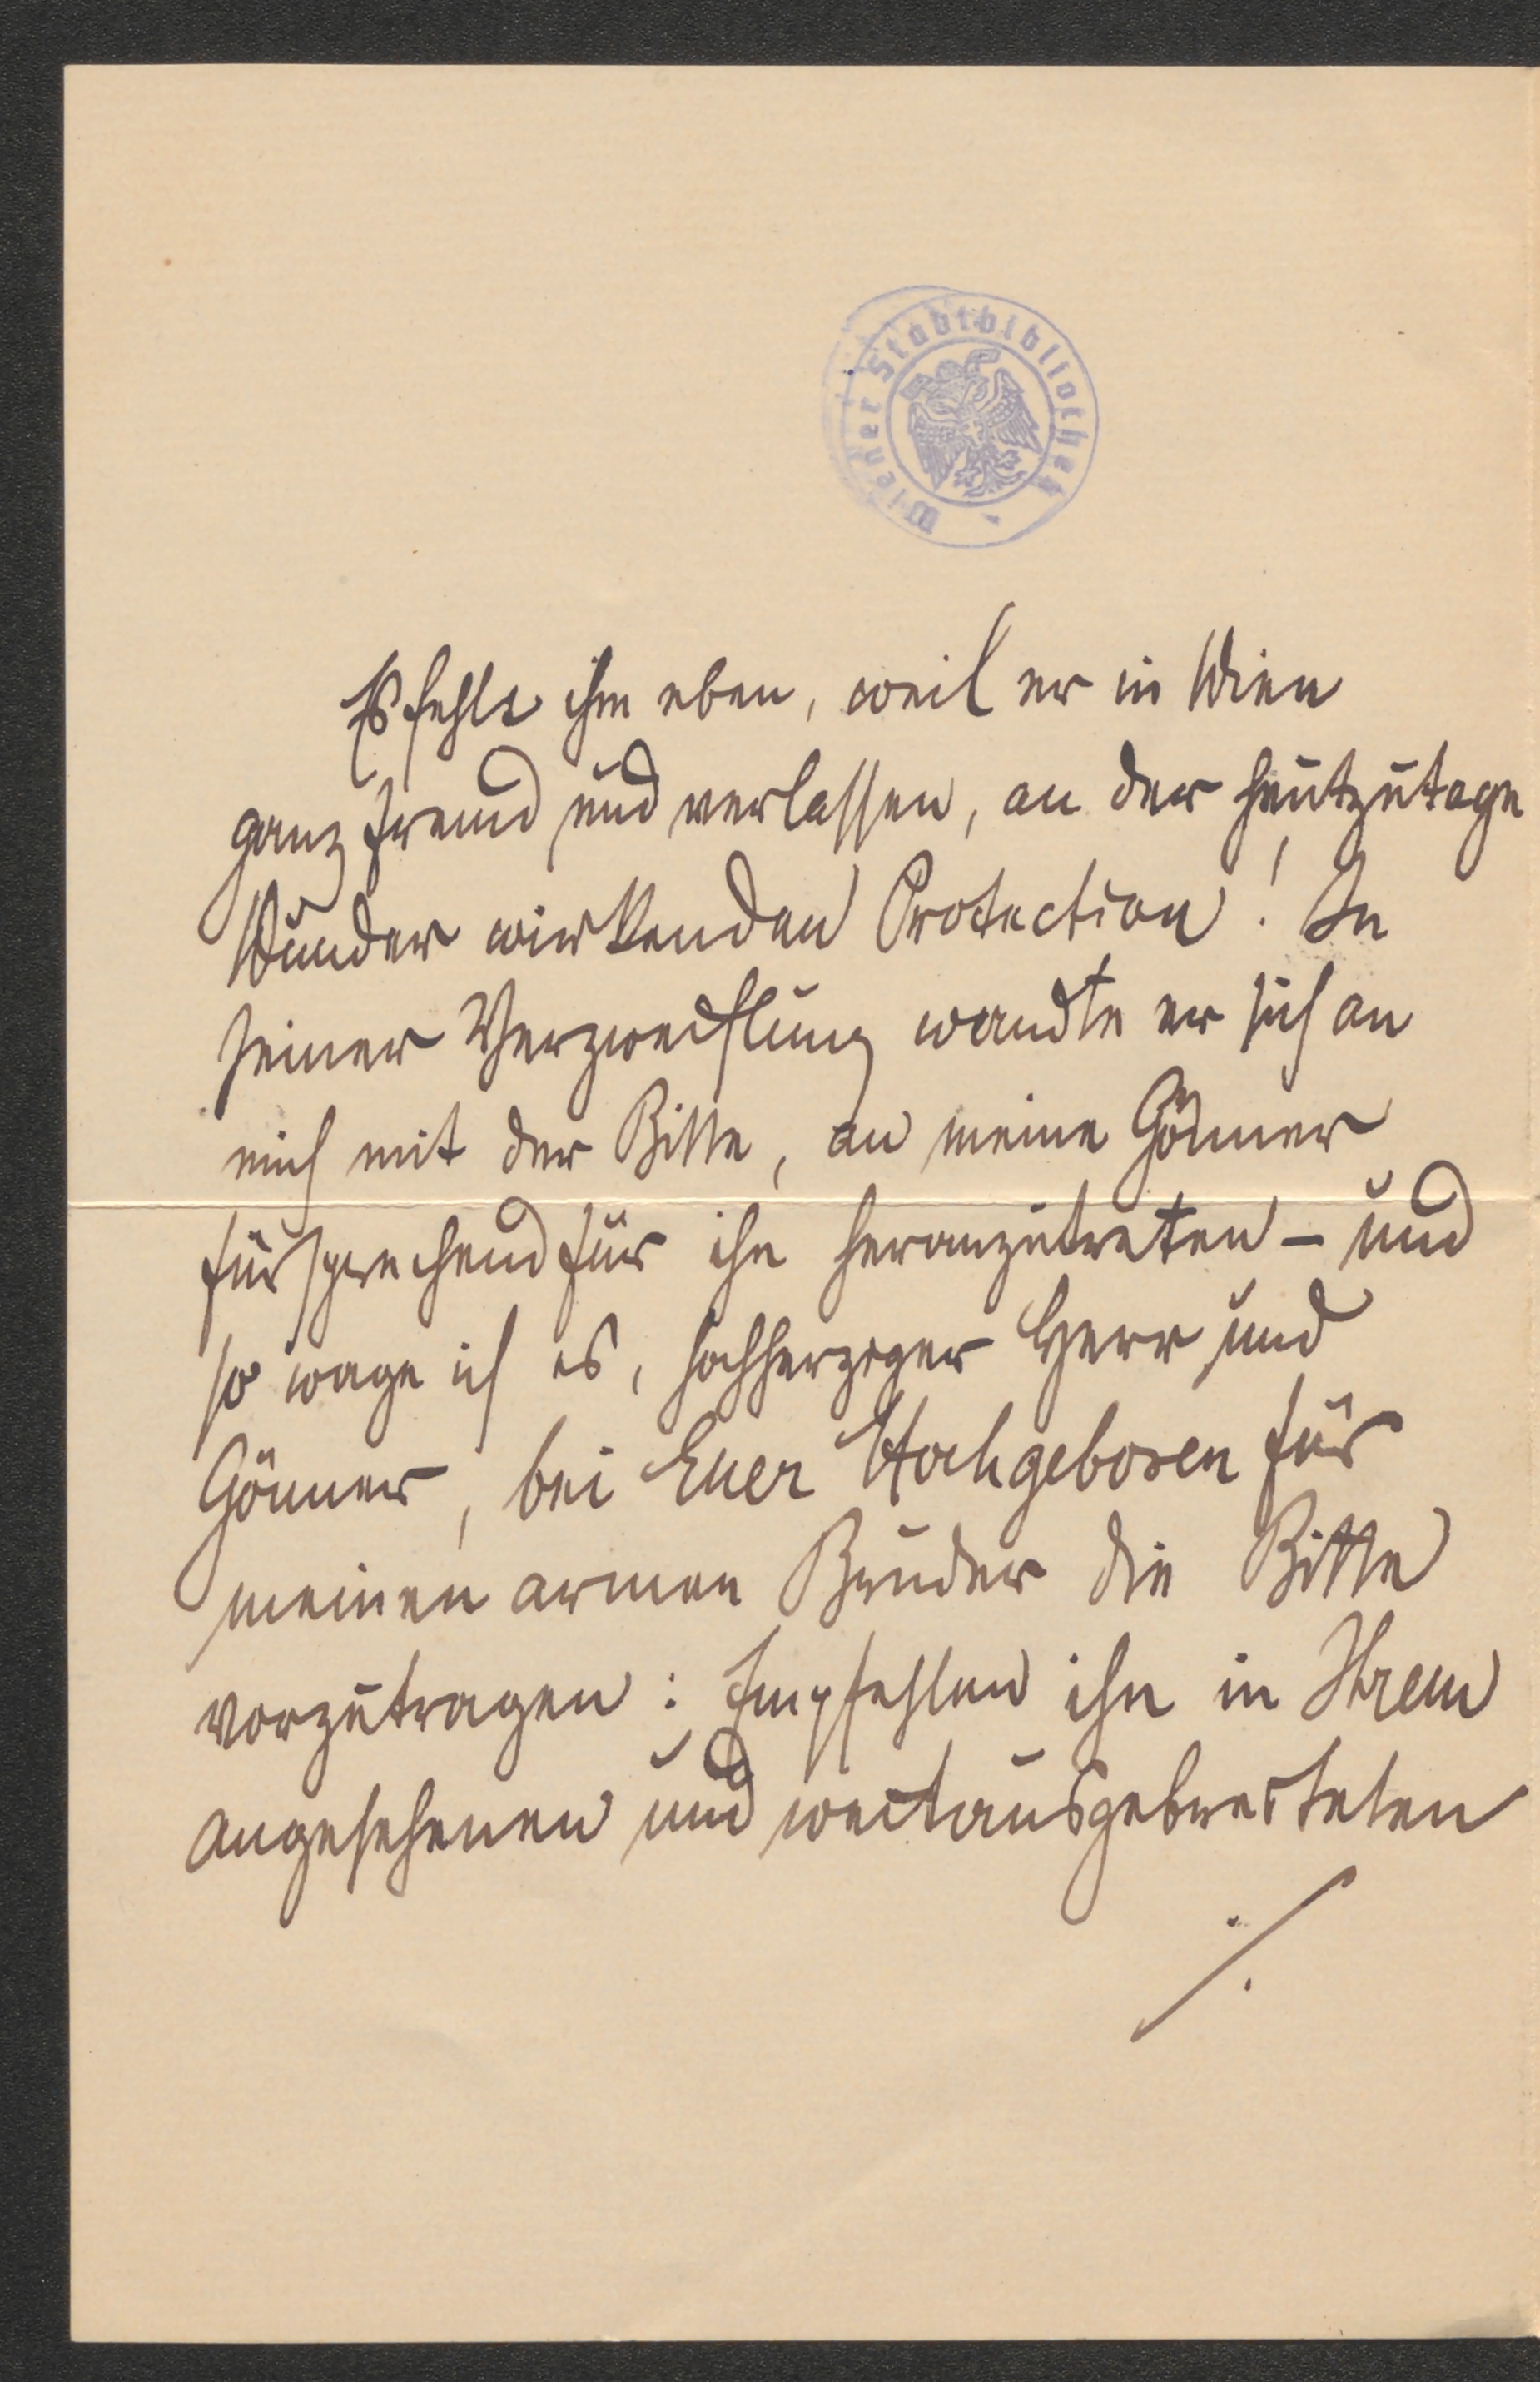 Wiener Stadtbibliothek
Es fehlt ihm eben, weil er in Wien
ganz fremd und verlassen, an der heutzutage
Wunder wirkenden Protection! In
seiner Verzweiflung wandte er sich an
mich mit der Bitte, an meine Gönner
fürsprechend für ihn heranzutreten – und
so wage ich es, hochherziger Herr und
Gönner, bei Euer Hochgeboren für
meinen armen Bruder die Bitte
vorzutragen: Empfehlen ihn in Ihrem
angesehenen und weitausgebreiteten
./.